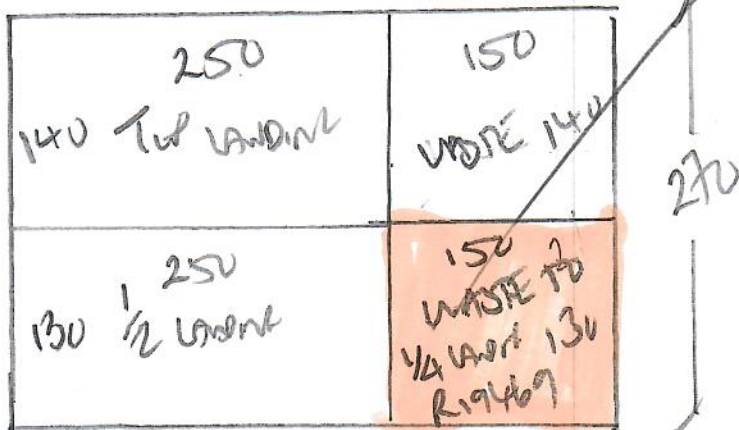 250
140 TOP LANDING
150
WASTE 140
270
250
130 1/2 LANDING
150
WASTE TO
1/4 LANDN 130
R19469